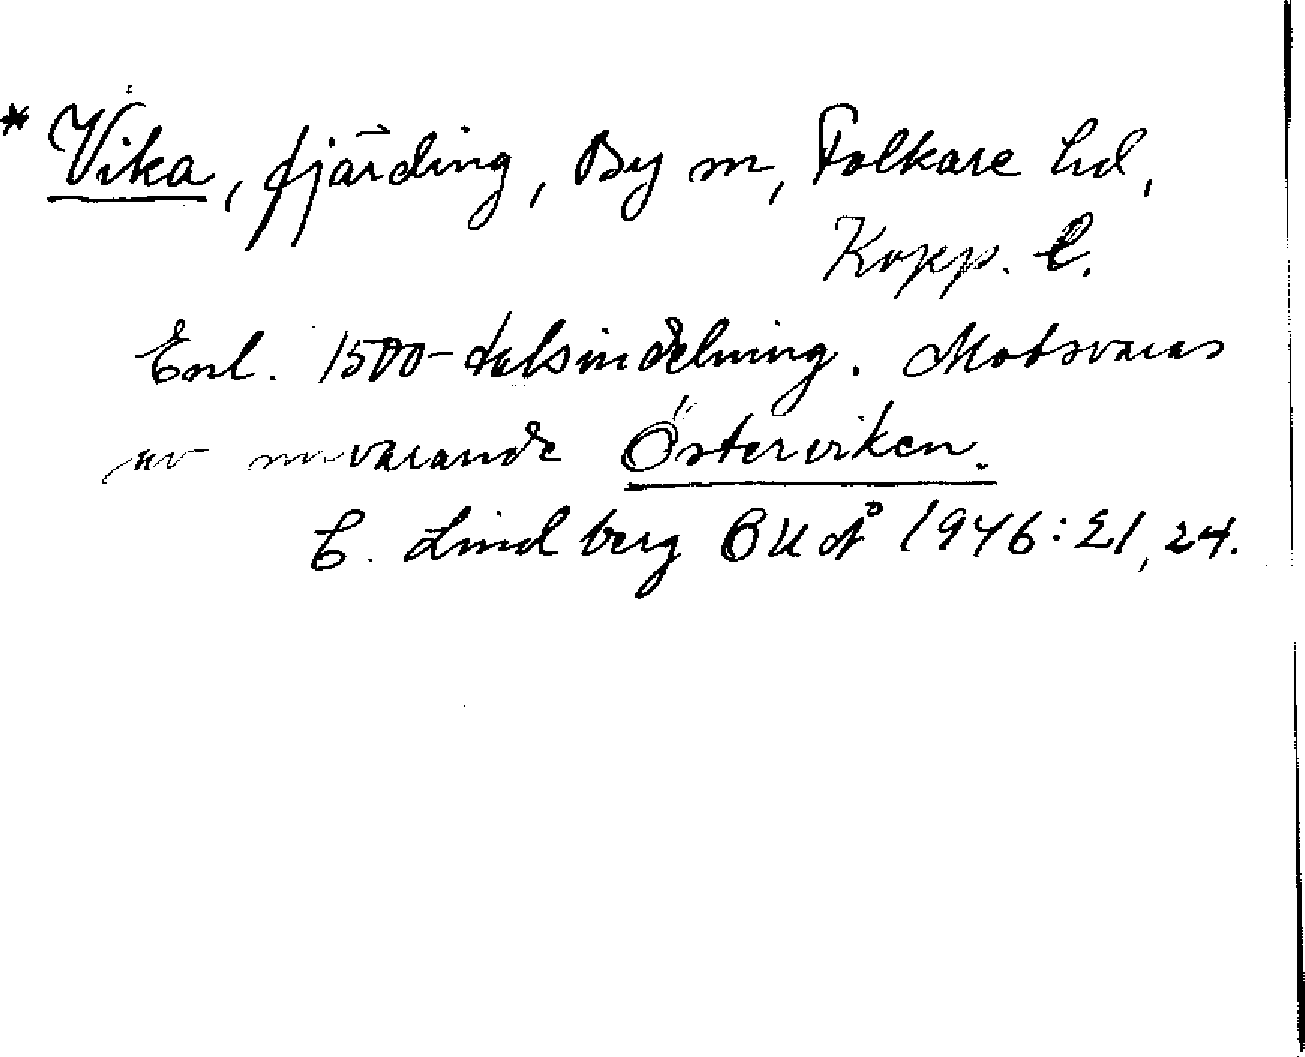 * Vika, fjärding, By sn, Folkare hd,
Kopp. l.
Enl. 1500-talsindelning. Motsvaras
av nuvarande Österviken.
E. Lindberg OUÅ 1946: 21, 24.